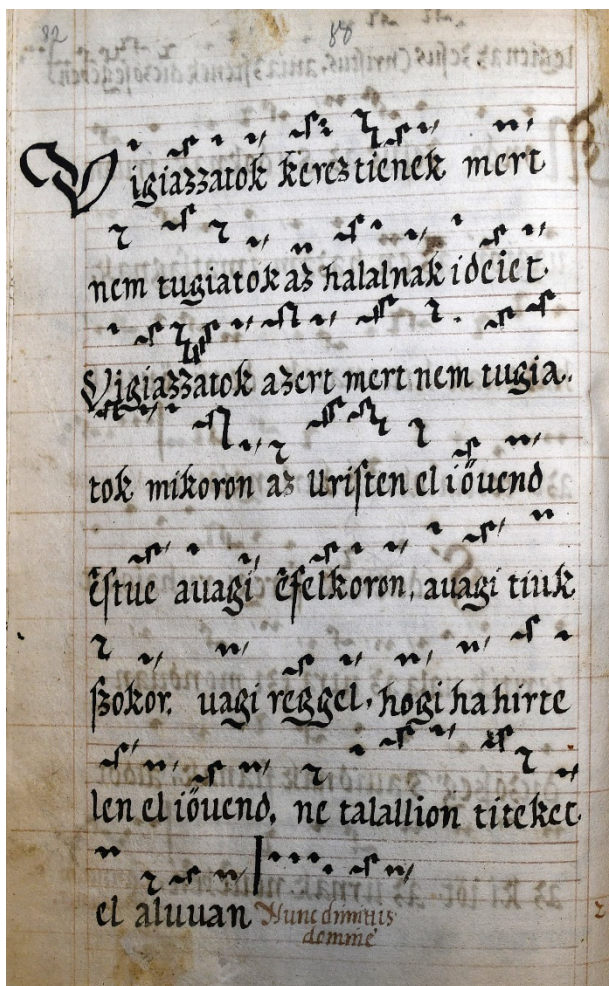 82 88
Vigiazzatok kereztienek mert
nem tugiatok az halalnak ideiet
Vigiazzatok azert mert nem tugia-
tok mikoron az Uriſten el iöuend
eſtue auagi eſelkoron, auagi tiuk
ſzokor. uagi reggel, hogi ha hirte
len el iöuend, ne talallion titeket
el aluuan Nunc dimittis
domine